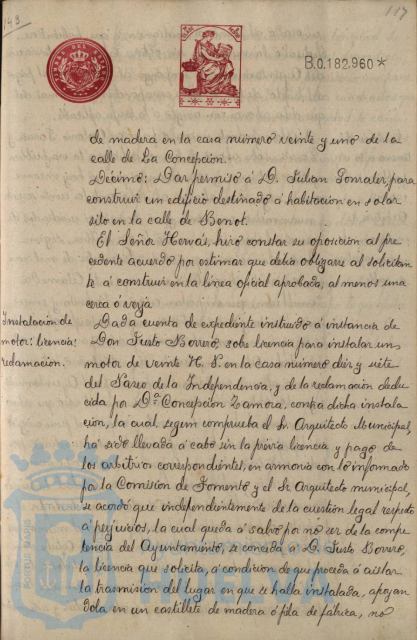 143
117
B.0.182.960*
de madera en la casa número veinte y uno de la
calle de La Concepcion.
Décimo: Dar permiso á D. Julian Gonzalez, para
construir un edificio destinado á habitacion en solar
sito en la calle de Benot.
El Señor Hervás, hizo constar su oposición al pre
cedente acuerdo por estimar que debia obligarse al solicitan
te á construir en la línea oficial aprobada, al menos una
cerca ó verja
Instalación de
motor: licencia:
reclamación.
Dada cuenta de expediente instruido á instancia de
Don Justo Borrero, sobre licencia para instalar un
motor de veinte H. P. en la casa número diez y siete
del Paseo de la Independencia, y de la reclamación dedu
cida por D.ª Concepcion Zamora, contra dicha instala
cion, la cual, segun comprueba el Sr. Arquitecto Municipal,
há sido llevada á cabo sin la prévia licencia y pago de
los arbitrios correspondientes, en armonia con lo informado
por la Comision de Fomento y el Sr. Arquitecto municipal,
se acordó que independientemente de la cuestion legal respecto
á perjuicios, la cual queda á salvo por no ser de la compe
tencia del Ayuntamiento, se conceda á D. Justo Borrero,
la licencia que solicita, á condicion de que proceda á aislar
la trasmision del lugar en que se halla instalada, apoyan
dola en un castillete de madera ó pila de fábrica, no